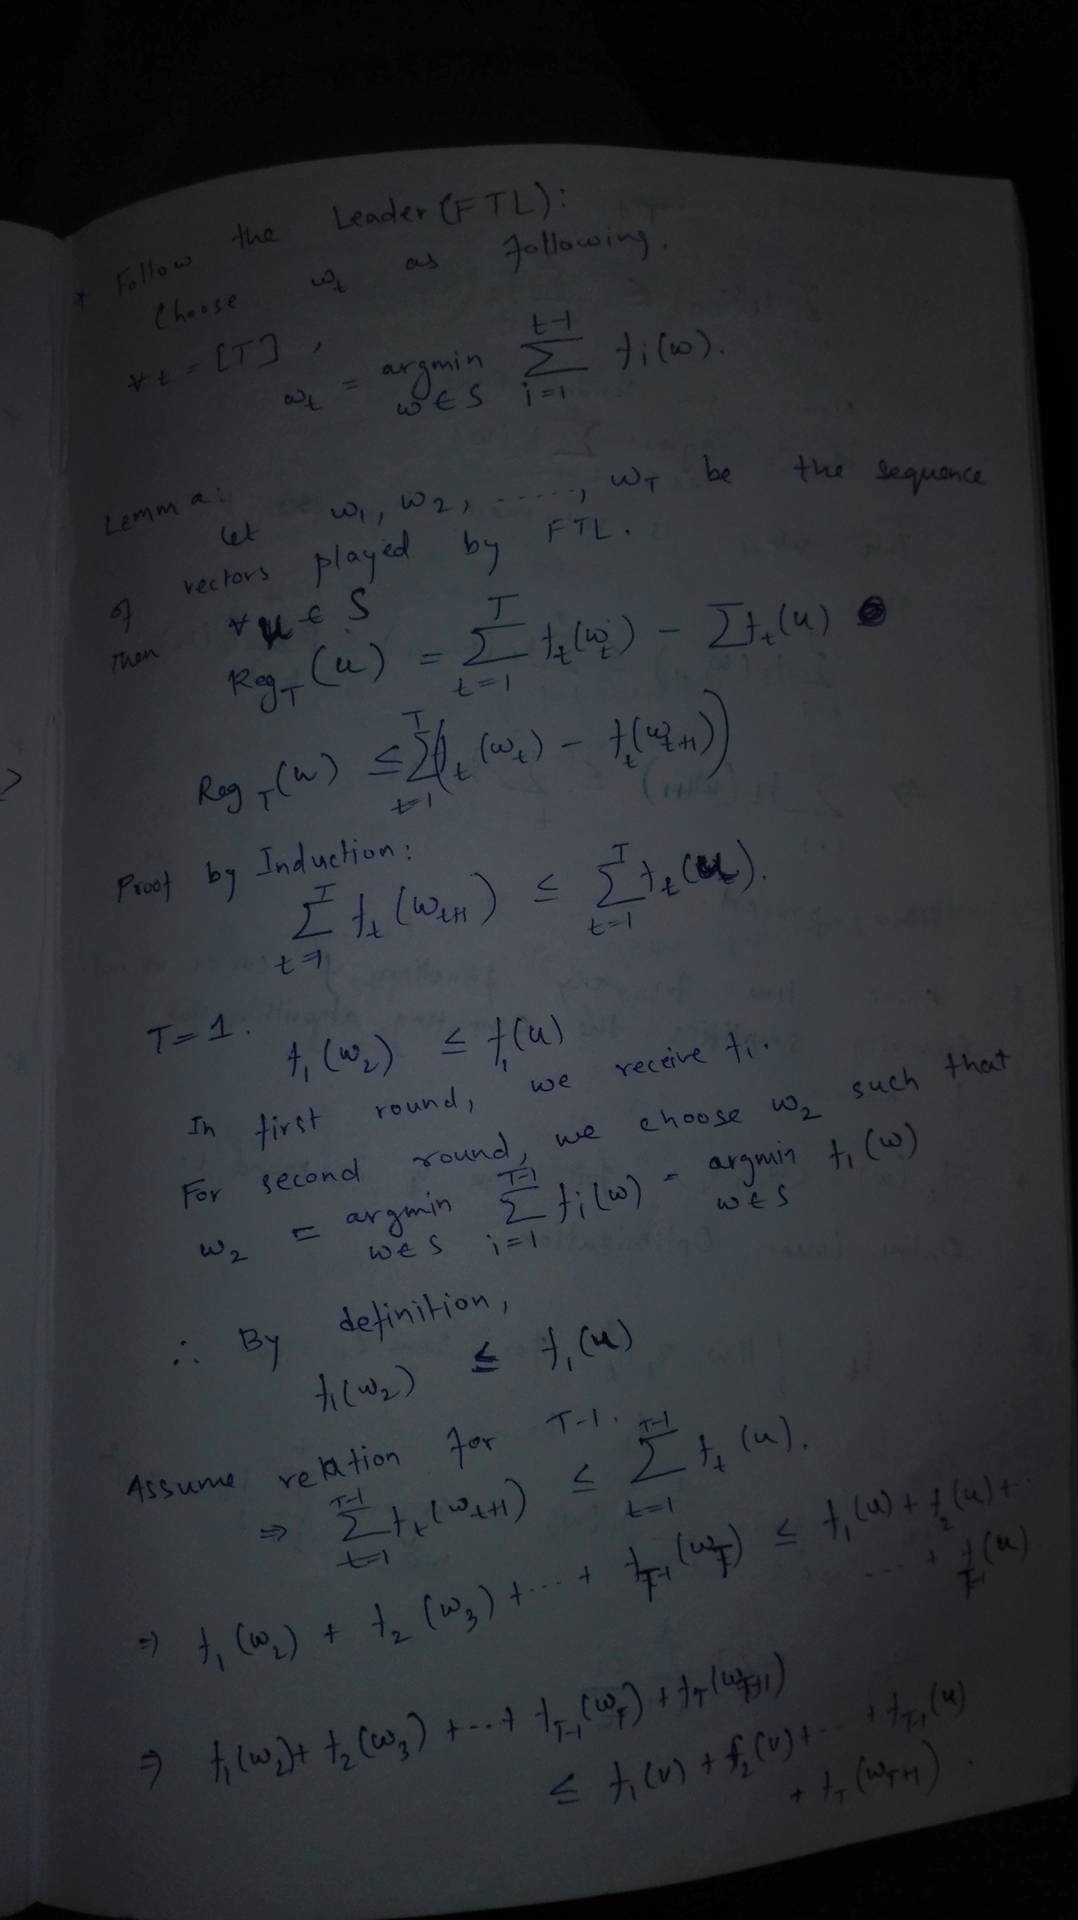 * Follow the Leader (FTL):
Choose w_t as following.
∀ t = [T], w_t = argmin_{w ∈ S} Σ_{i=1}^{t-1} f_i(w).
Lemma:
Let w_1, w_2, ......, w_T be the sequence
of vectors played by FTL.
Then ∀ u ∈ S
Reg_T(u) = Σ_{t=1}^{T} f_t(w_t) - Σ f_t(u)
Reg_T(u) ≤ Σ_{t=1}^{T} (f_t(w_t) - f_t(w_{t+1}))
Proof by Induction:
Σ_{t=1}^{T} f_t(w_{t+1}) ≤ Σ_{t=1}^{T} f_t(u).
T = 1.
f_1(w_2) ≤ f_1(u)
In first round, we receive f_1.
For second round, we choose w_2 such that
w_2 = argmin_{w ∈ S} Σ_{i=1}^{T-1} f_i(w) = argmin_{w ∈ S} f_1(w)
∴ By definition,
f_1(w_2) ≤ f_1(u)
Assume relation for T-1.
⇒ Σ_{t=1}^{T-1} f_t(w_{t+1}) ≤ Σ_{t=1}^{T-1} f_t(u).
⇒ f_1(w_2) + f_2(w_3) + ... + f_{T-1}(w_T) ≤ f_1(u) + f_2(u) + ..
... + f_{T-1}(u)
⇒ f_1(w_2) + f_2(w_3) + ... + f_{T-1}(w_T) + f_T(w_{T+1})
≤ f_1(u) + f_2(u) + ... + f_{T-1}(u)
+ f_T(w_{T+1}).